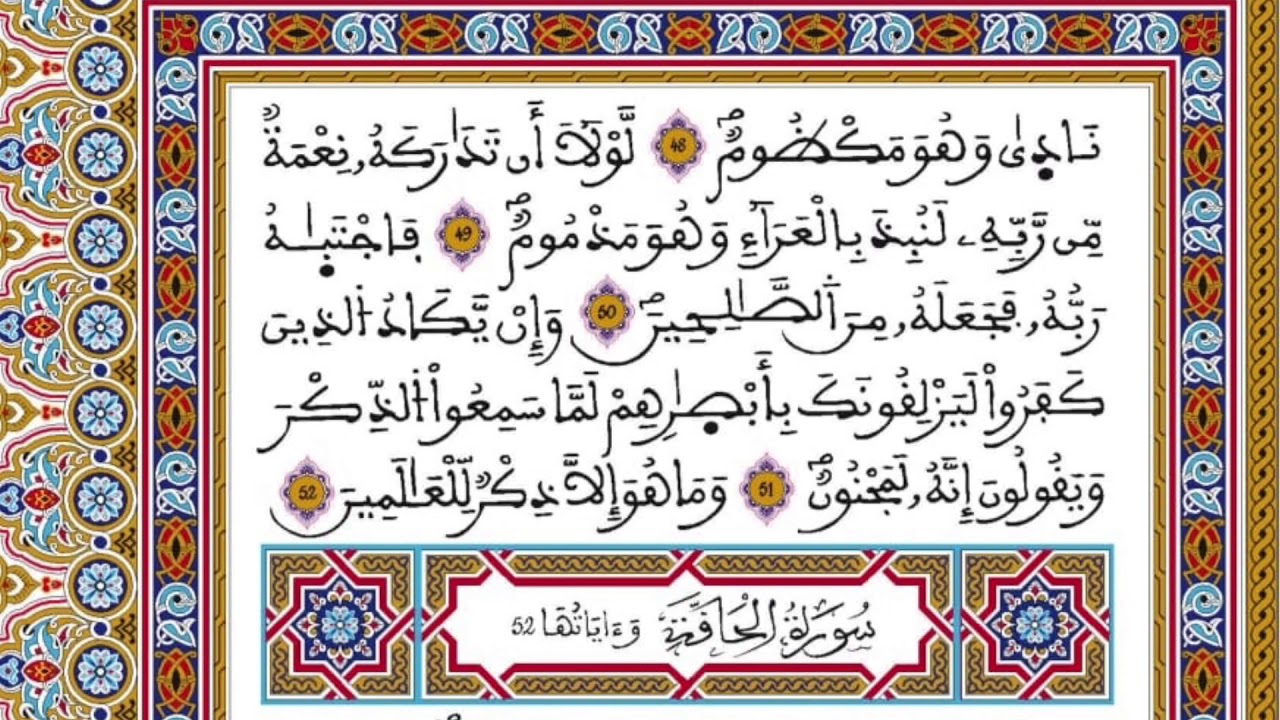 نَادٜىٰ وَهُوَ مَكْظُومٞۖ 48 لَّوْلَآ أَن تَدَٰرَكَهُۥ نِعْمَةٞ
مِّن رَّبِّهِۦ لَنُبِذَ بِالْعَرَآءِ وَهُوَ مَذْمُومٞۖ 49 فَاجْتَبٜىٰهُ
رَبُّهُۥ فَجَعَلَهُۥ مِنَ اَ۬لصَّٰلِحِينَۖ 50 وَإِنْ يَّكَادُ اُ۬لذِينَ
كَفَرُواْ لَيَزْلِقُونَكَ بِأَبْصٰ۪رِهِمْ لَمَّا سَمِعُواْ اُ۬لذِّكْرَ
وَيَقُولُونَ إِنَّهُۥ لَمَجْنُونٞۖ 51 وَمَا هُوَ إِلَّا ذِكْرٞ لِّلْعَٰلَمِينَ 52
سُورَةُ الْحَاقَّةِ وَءَايَاتُهَا 52